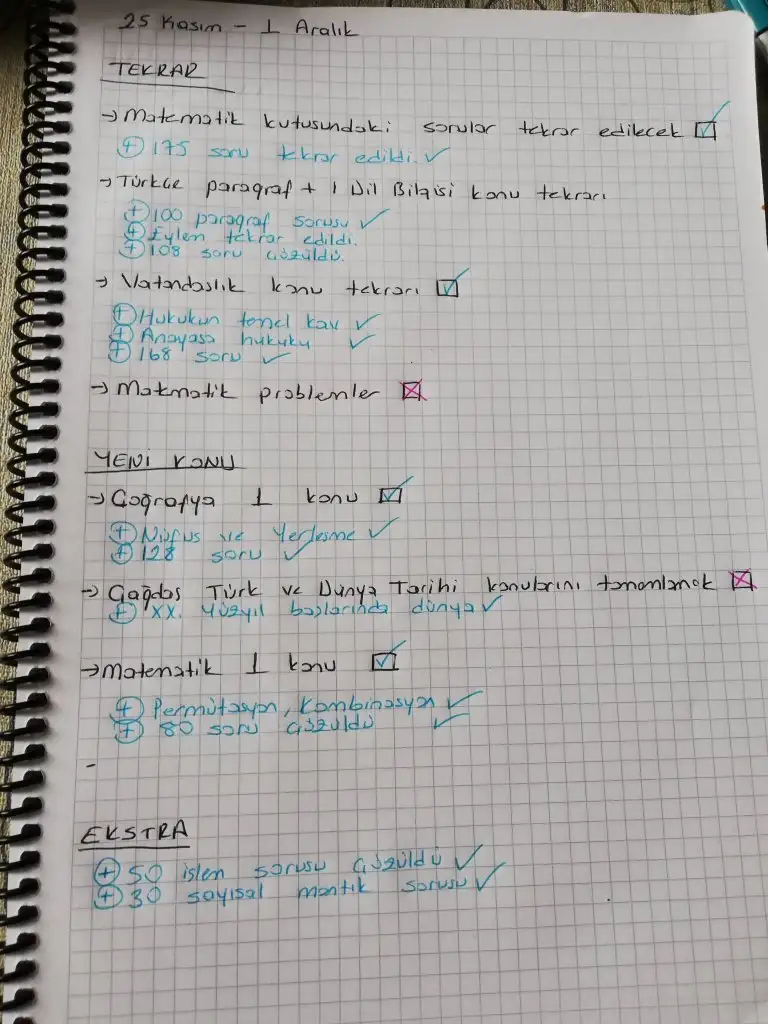 25 Kasım - 1 Aralık
TEKRAR
→ Matematik kutusundaki sorular tekrar edilecek ☑
⊕ 175 soru tekrar edildi. ✓
→ Türkçe paragraf + 1 Dil Bilgisi konu tekrarı
⊕ 100 paragraf sorusu ✓
⊕ Eylem tekrar edildi.
⊕ 108 soru çözüldü.
→ Vatandaslık konu tekrarı ☑
⊕ Hukukun temel kav ✓
⊕ Anayasa hukuku ✓
⊕ 168 soru ✓
→ Matematik problemler ☒
YENİ KONU
→ Coğrafya 1 konu ☑
⊕ Nüfus ve Yerleşme ✓
⊕ 128 soru ✓
→ Çağdaş Türk ve Dünya Tarihi konularını tamamlamak ☒
⊕ XX. Yüzyıl başlarında dünya ✓
→ Matematik 1 konu ☑
⊕ Permütasyon, Kombinasyon ✓
⊕ 80 soru çözüldü ✓
-
EKSTRA
⊕ 50 işlem sorusu çözüldü ✓
⊕ 30 sayısal mantık sorusu ✓